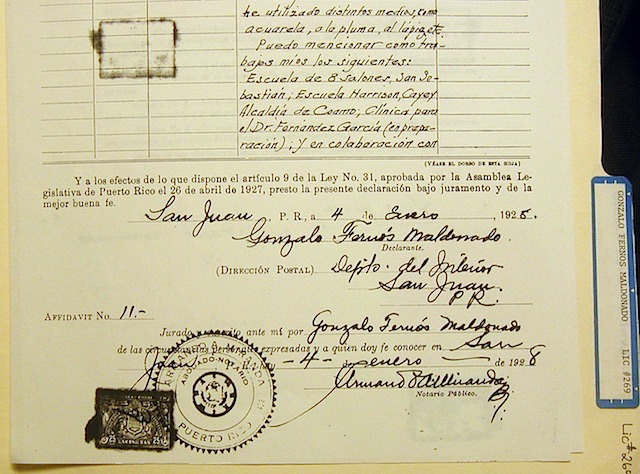 he utilizado distintos medios, como
acuarela, a la pluma, al lápiz, etc.
Puedo mencionar como tra-
bajos mios los siguientes:
Escuela de 8 Salones, San Se-
bastián; Escuela Harrison, Cayey
Alcaldía de Coamo; Clínica para
el Dr. Fernández García (en prepa-
ración); Y en colaboración con
(VÉASE EL DORSO DE ESTA HOJA)
Y a los efectos de lo que dispone el artículo 9 de la Ley No. 31, aprobada por la Asamblea Le-
gislativa de Puerto Rico el 26 de abril de 1927, presto la presente declaración bajo juramento y de la
mejor buena fe.
San Juan, P. R., a 4 de Enero, 1928.
Gonzalo Fernós Maldonado
Declarante.
(DIRECCIÓN POSTAL) Depto. del Interior
San Juan.
P.R.
AFFIDAVIT No. 11.-
Jurado y suscrito ante mí por Gonzalo Fernós Maldonado
de las circunstancias personales expresadas y a quien doy fe conocer en San
Juan, P. R., hoy -4- de enero de 1928
Notario Público.
ABOGADO-NOTARIO
PUERTO RICO
25 25
GONZALO FERNOS MALDONADO LIC #269
Lic # 269